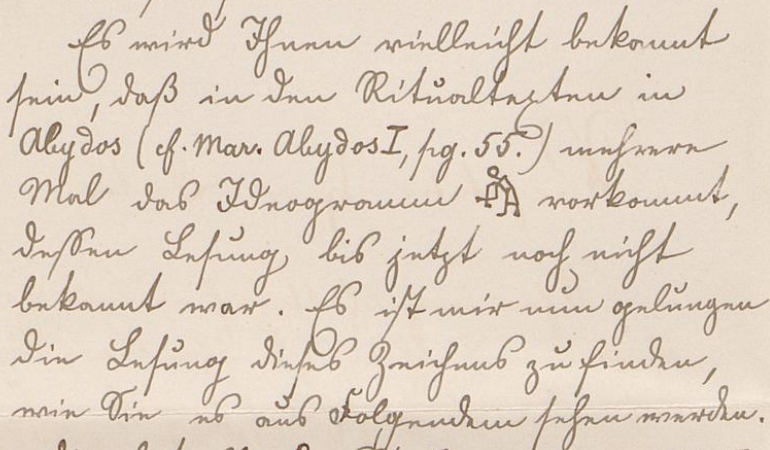 Es wird Ihnen vielleicht bekannt
sein, daß in den Ritualtexten in
Abydos (cf. Mar. Abydos I, pg. 55.) mehrere
Mal das Ideogramm vorkommt,
dessen Lesung bis jetzt noch nicht
bekannt war. Es ist mir nun gelungen
die Lesung dieses Zeichens zu finden,
wie Sie es aus Folgendem sehen werden.